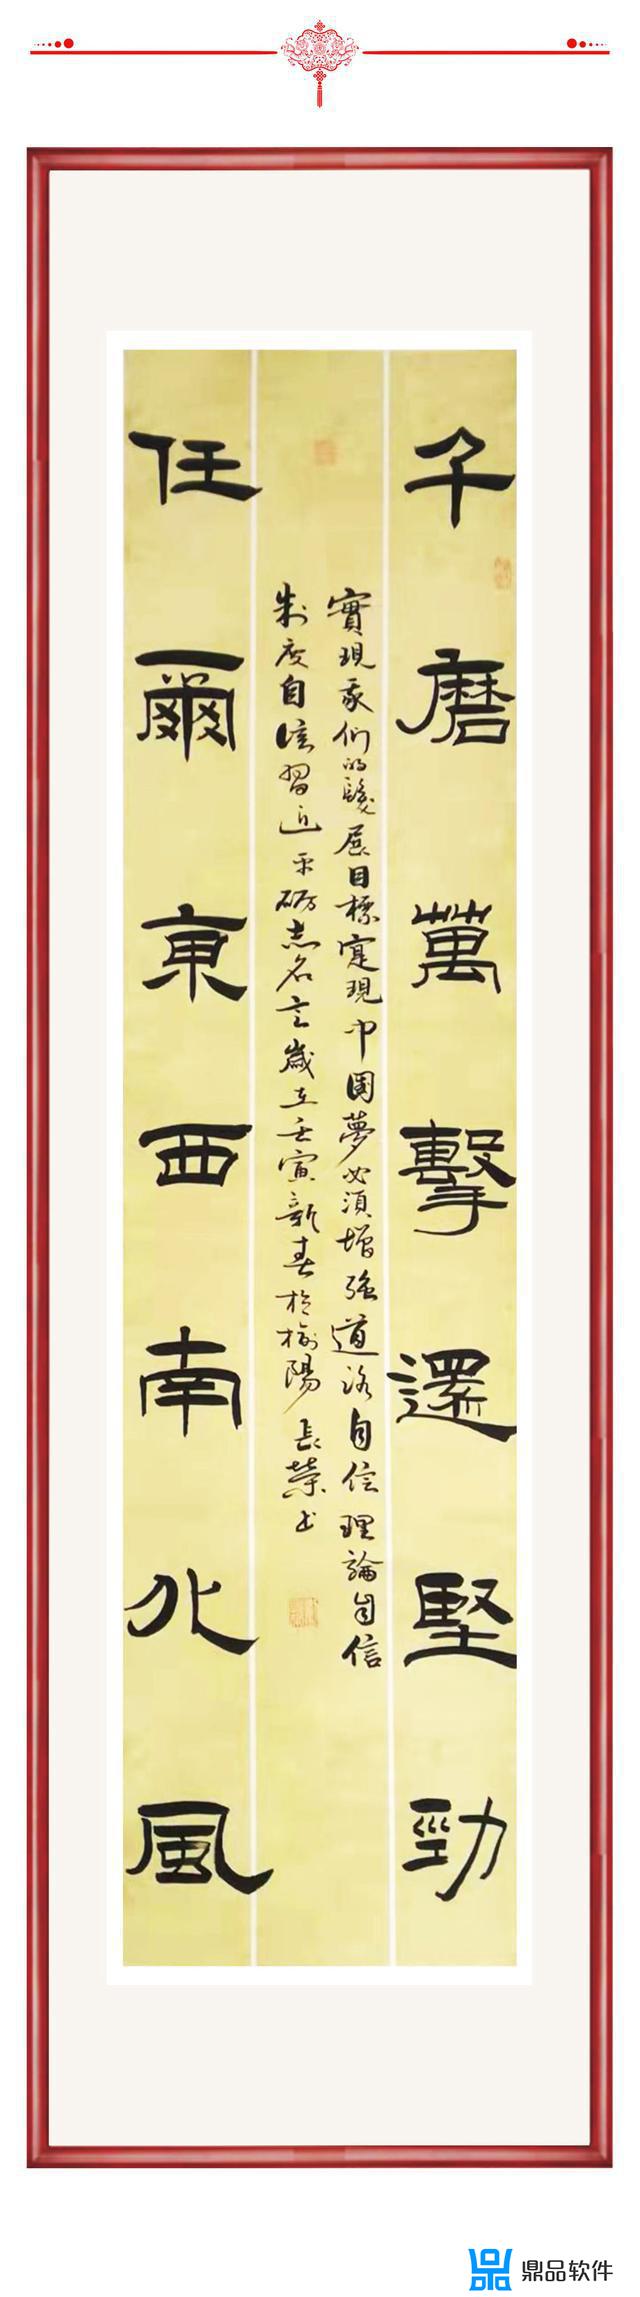 千磨萬擊還堅勁
實現我們的發展目標實現中國夢必須增強道路自信理論自信
制度自信習近平砺志名言歲在壬寅新春於榆陽長榮书
任爾東西南北風
鼎品软件